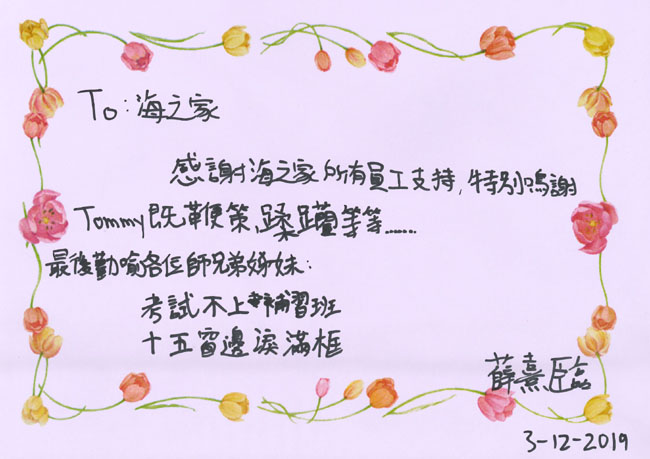 To：海之家
感謝海之家所有員工支持，特別鳴謝
Tommy既鞭策、蹂躪等等......
最後勸喻各位師兄弟姊妹：
考試不上補習班
十五留邊淚滿框
薛熹臨
3-12-2019